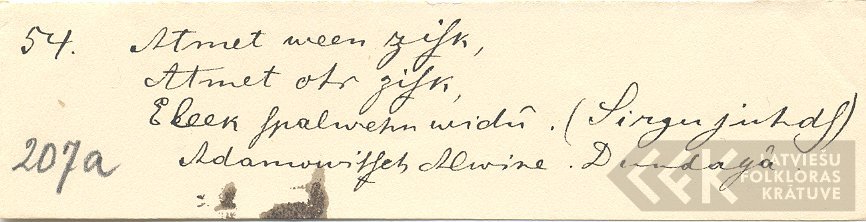 54. Atmet ween zisk,
Atmet otr zisk,
Eleek spalwehn widû. (Sirgu juhds)
207a
Adamowitsch Alwine. Dundagâ
LATVIEŠU
FOLKLORAS
KRĀTUVE